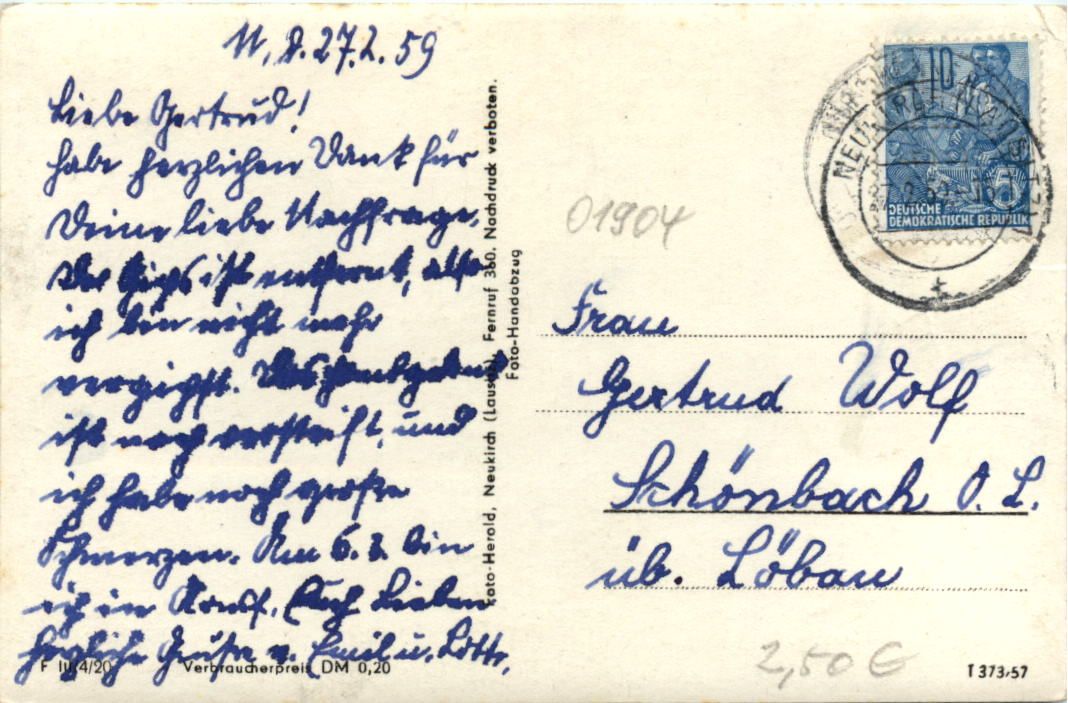 N, d. 27.2.59
Liebe Gertrud!
habe herzlichen Dank für
Deine liebe Nachfrage.
Der Gips ist entfernt, also
ich bin nicht mehr
vergipst. Das Handgelenk
ist noch versteift, und
ich habe noch große
Schmerzen. Am 6.3. bin
ich in Euch Lieben
herzliche Grüße v. Emil u. Lotte.
Foto-Herold, Neukirch (Lausitz), Fernruf 360. Nachdruck verboten.
Foto-Handabzug
F III/4/20 Verbraucherpreis DM 0,20
10
5
DEUTSCHE
DEMOKRATISCHE REPUBLIK
NEUKIRCH (LAUSITZ)
01904
Frau
Gertrud Wolf
Schönbach O. L.
üb. Löbau
2,50 €
T 373/57